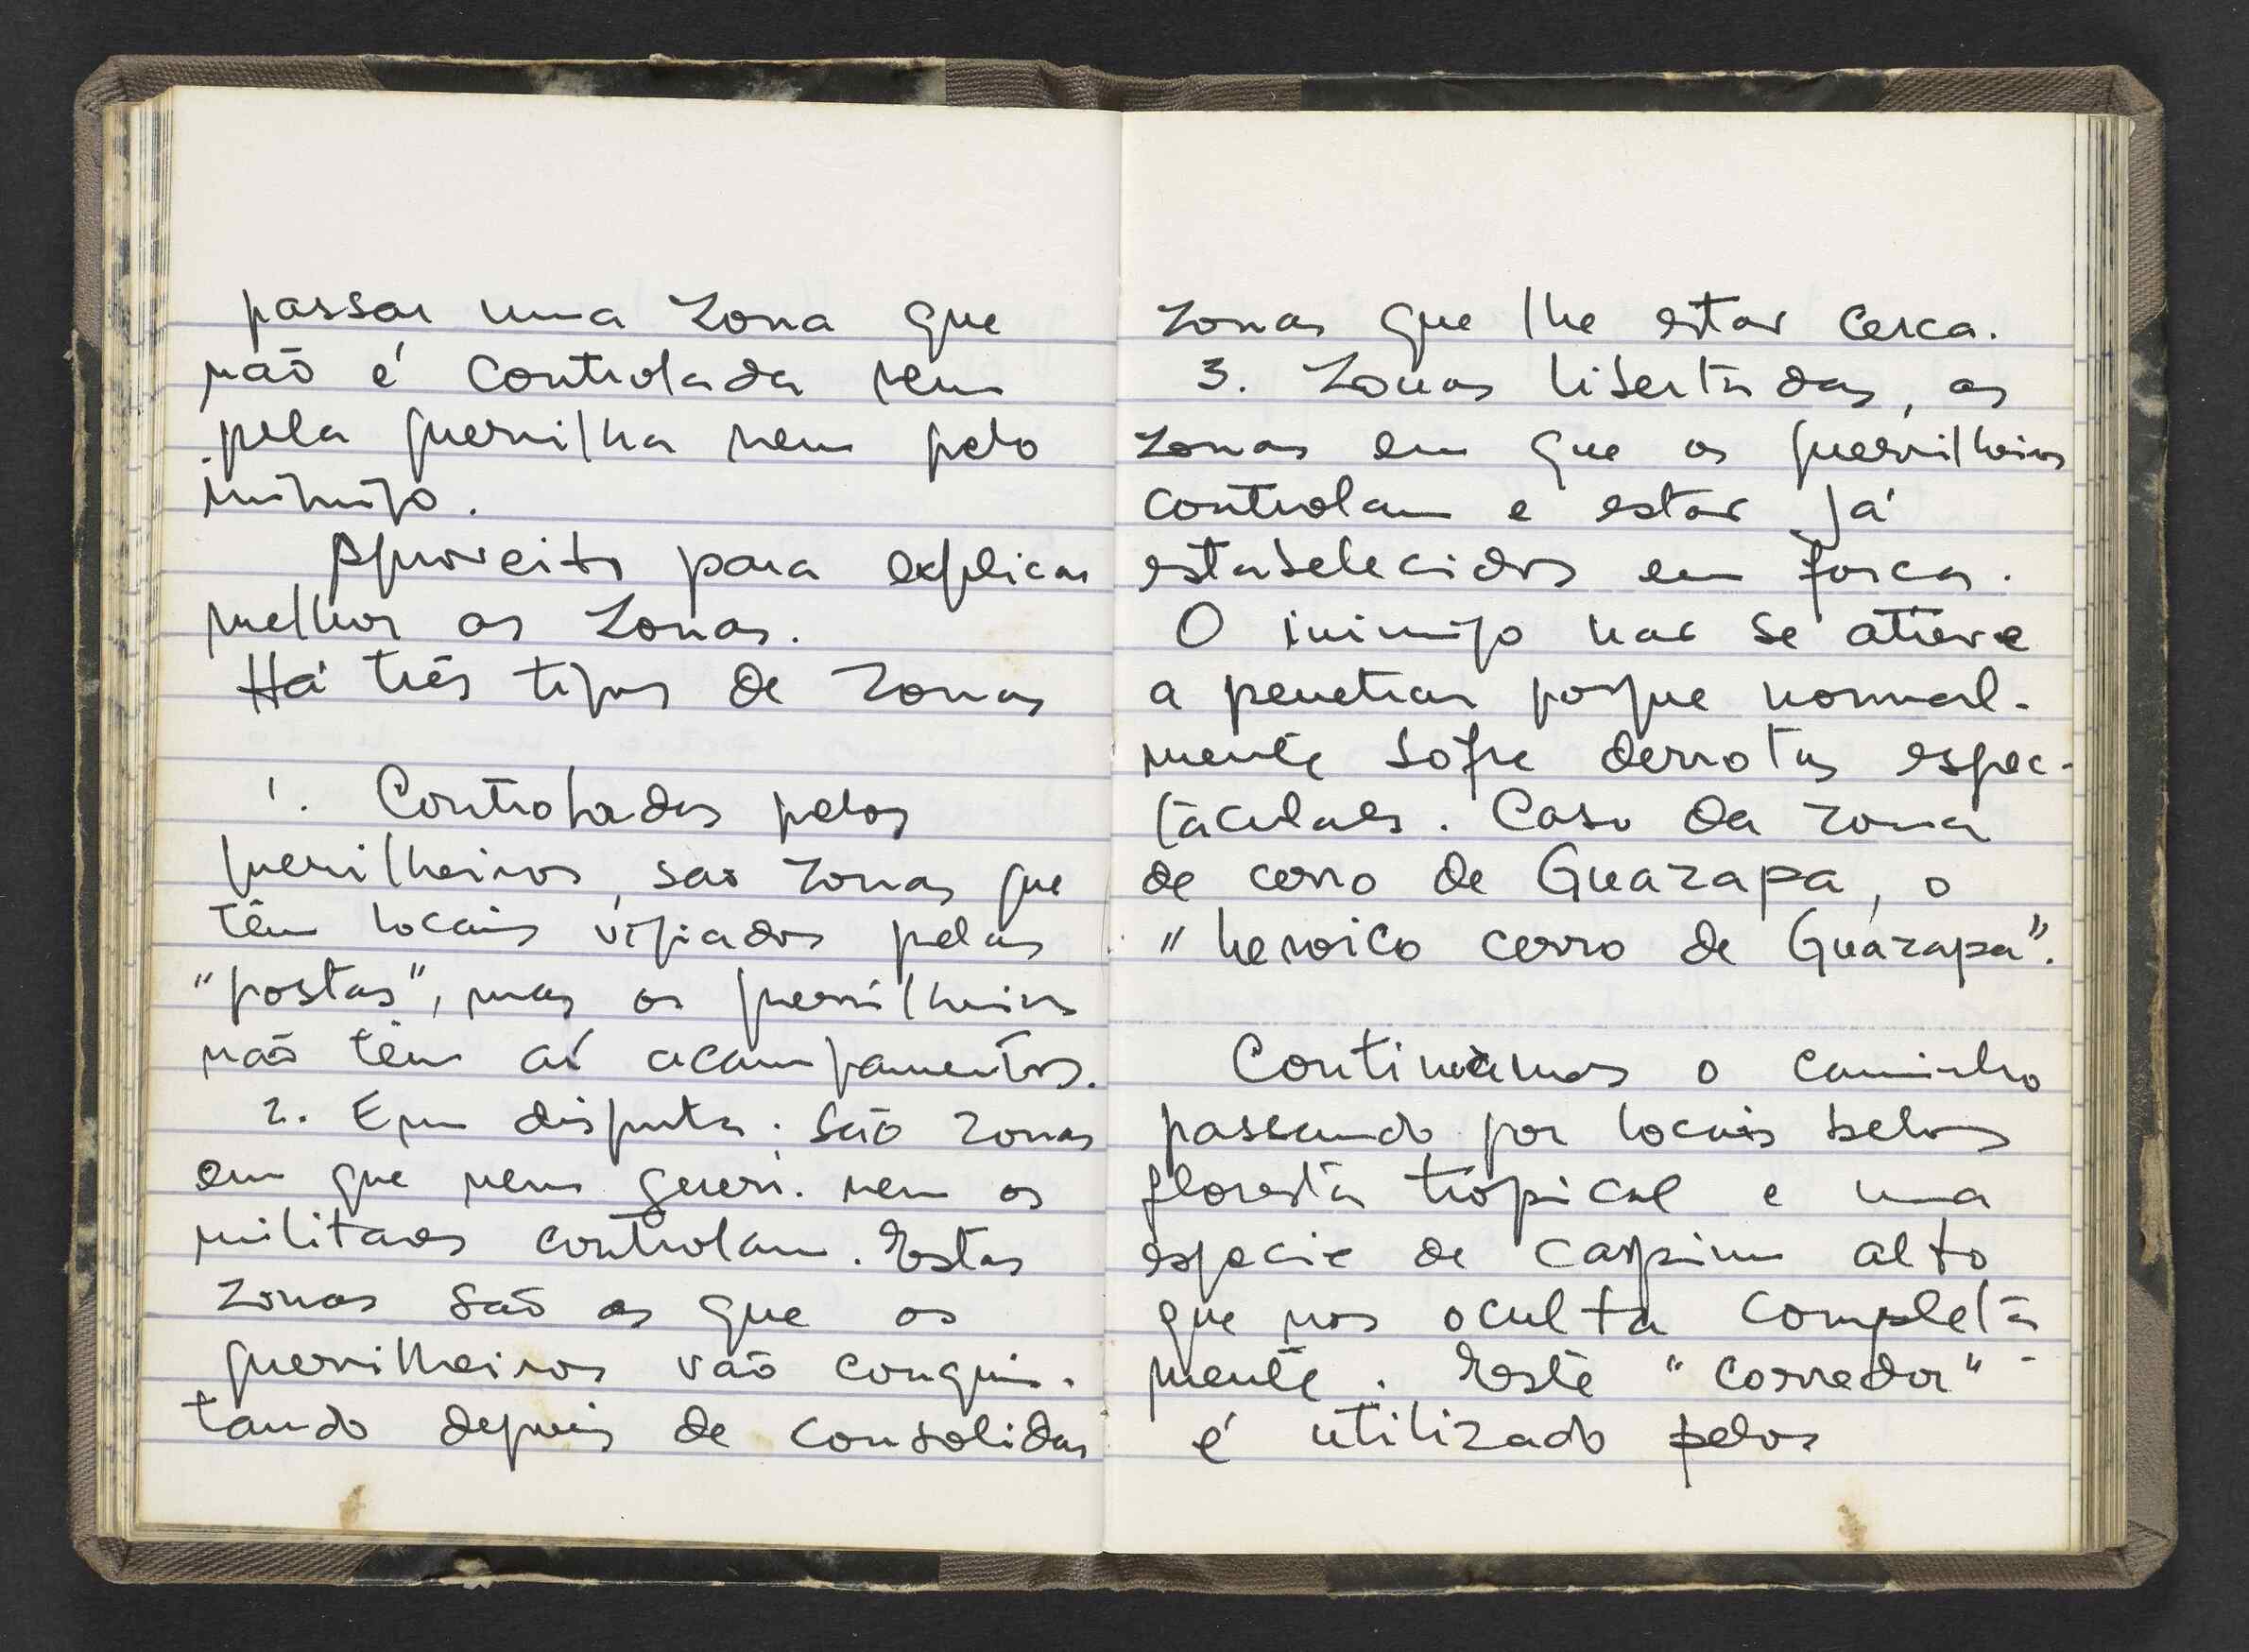 passar uma zona que
não é controlada nem
pela guerrilha nem pelo
inimigo.
Aproveito para explicar
melhor as zonas.
Há três tipos de zonas
1. Controladas pelos
guerrilheiros, são zonas que
têm locais vigiados pelas
"postas", mas os guerrilheiros
não têm aí acampamentos.
2. Em disputa. São zonas
em que nem guerri. nem os
militares controlam. Estas
zonas são as que os
guerrilheiros vão conquis-
tando depois de consolidar
zonas que lhe estão cerca.
3. Zonas libertadas, as
zonas em que os guerrilheiros
controlam e estão já
estabelecidos em força.
O inimigo não se atreve
a penetrar porque normal-
mente sofre derrotas espec-
taculares. Caso da zona
de cerro de Guazapa, o
"heroico cerro de Guazapa".
Continuámos o caminho
passando por locais belos
floresta tropical e uma
espécie de capim alto
que nos oculta completa-
mente. Este "corredor"
é utilizado pelos